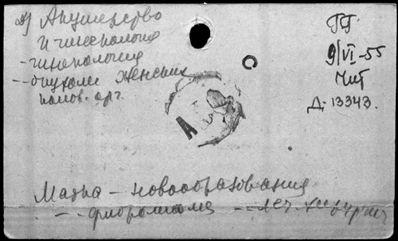 Акушерство
и гинекология
- гинекология
-- опухоли женских
полов. орг.
9/VI-55
Д. 13343.
Матка - новообразования
-- фибромиома -- леч. хирург.